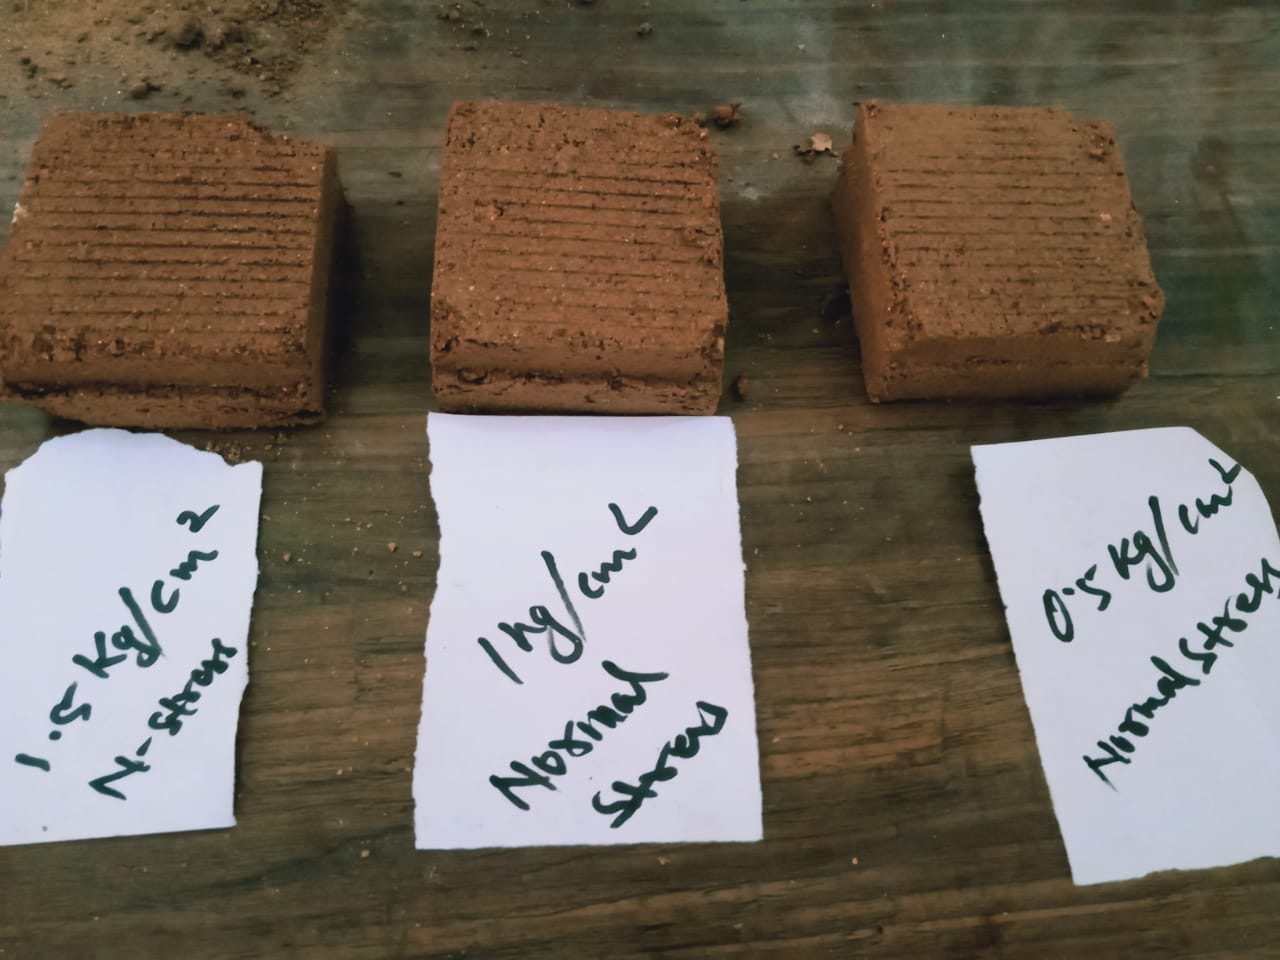 1.5 Kg/cm2
N-stress
1 kg/cm2
Normal
stress
0.5 Kg/cm2
Normal stress